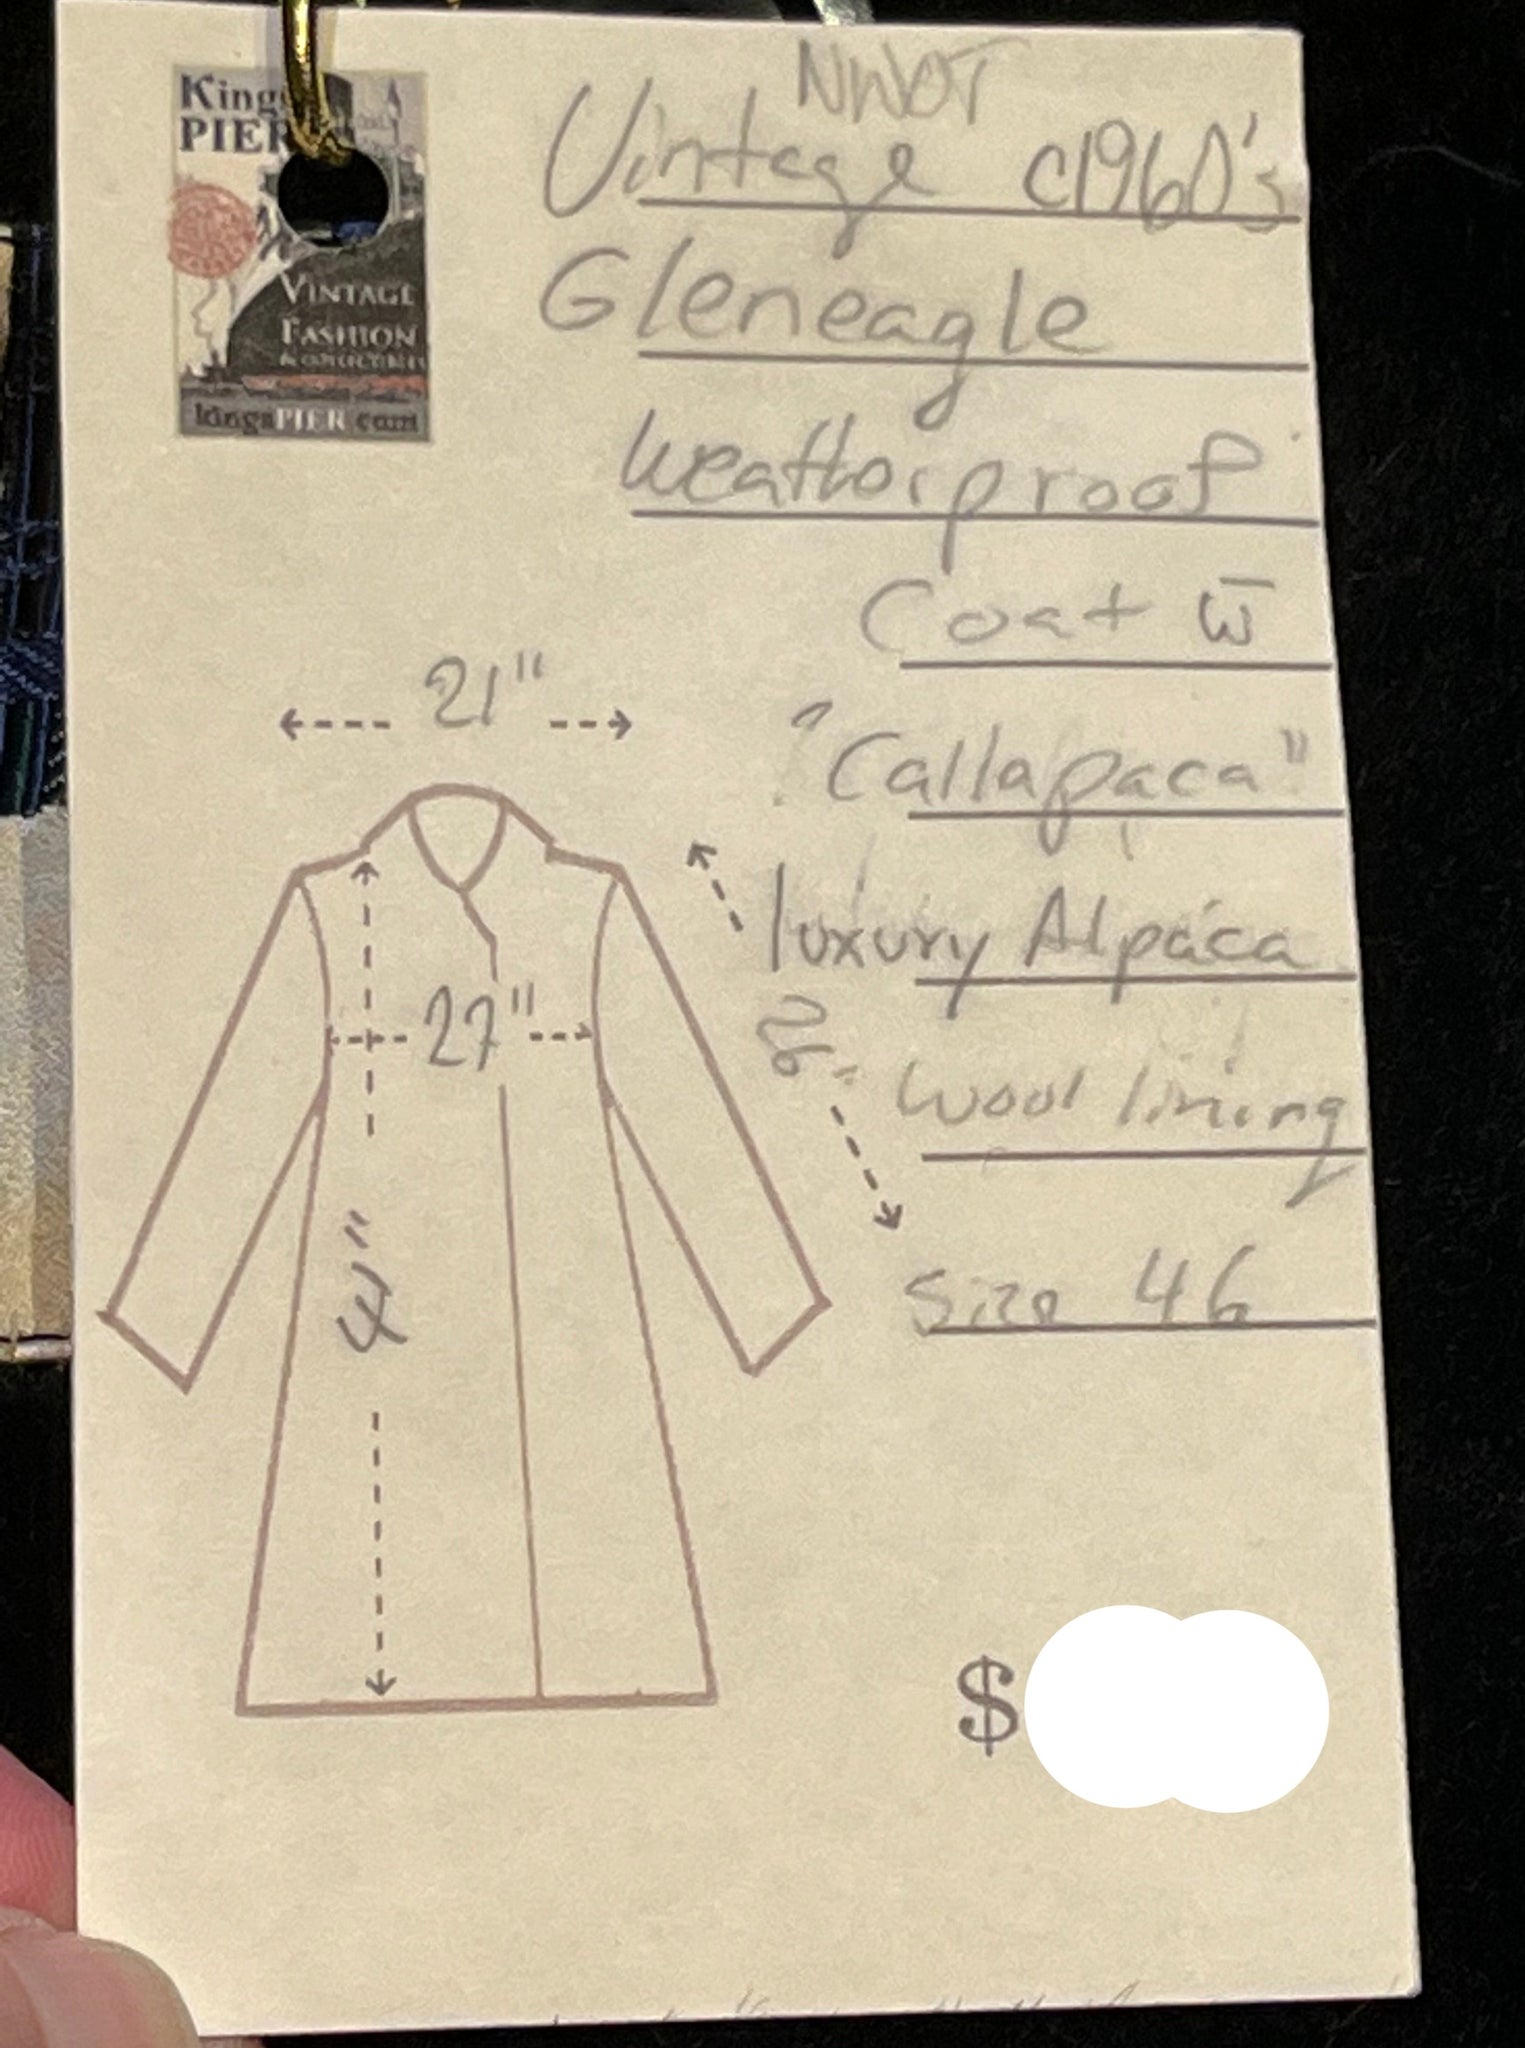 Kings
PIER
VINTAGE
FASHION
& COLLECTIBLES
kingsPIER.com
NWOT
Vintage c1960's
Gleneagle
Weatherproof
Coat w̄
"Callapaca"
luxury Alpaca
& wool lining
Size 46
21"
27"
$